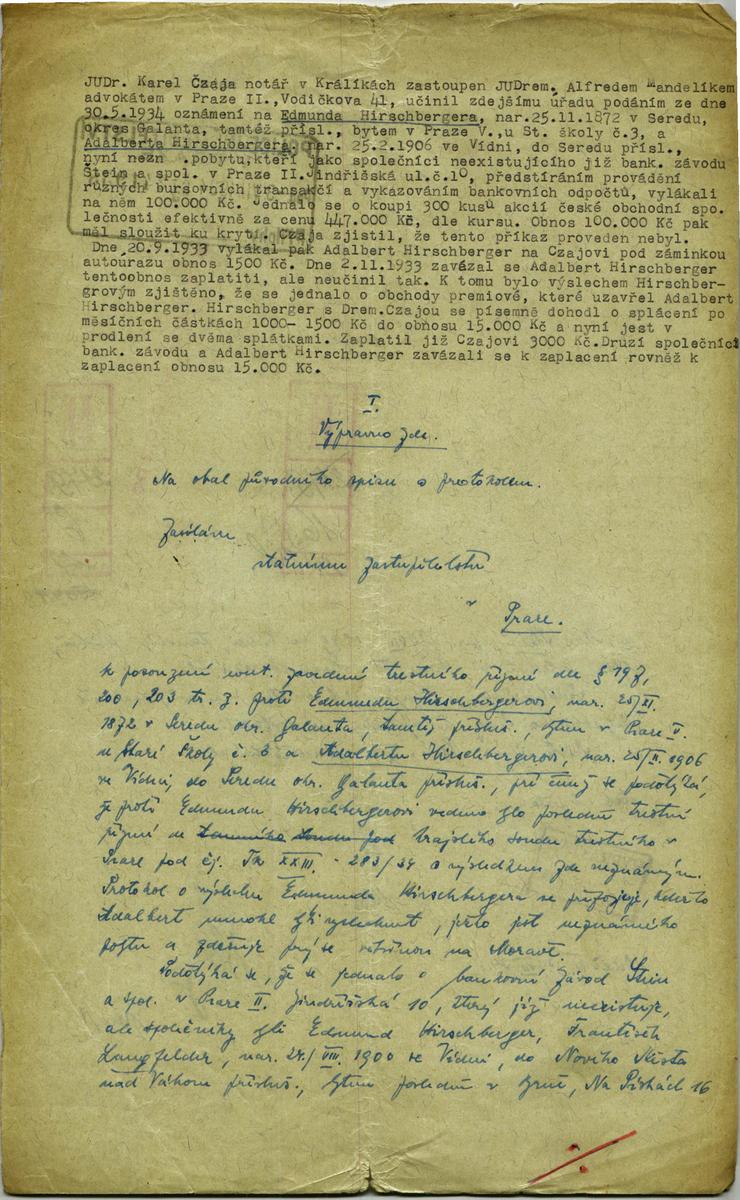 JUDr. Karel Čzaja notář v Králíkách zastoupen JUDrem. Alfredem Mandelíkem
advokátem v Praze II.,Vodičkova 41, učinil zdejšímu úřadu podáním ze dne
30.5.1934 oznámení na Edmunda Hirschbergera, nar.25.11.1872 v Seredu,
okres Galanta, tamtéž přísl., bytem v Praze V.,u St. školy č.3, a
Adalberta Hirschbergera, nar. 25.2.1906 ve Vídni, do Seredu přísl.,
nyní nezn .pobytu,kteří jako společníci neexistujícího již bank. závodu
Štein a spol. v Praze II.Jindřišská ul.č.10, předstíráním provádění
různých bursovních transakčí a vykazováním bankovních odpočtů, vylákali
na něm 100.000 Kč. Jednalo se o koupi 300 kusů akcií české obchodní spo.
lečnosti efektivně za cenu 447.000 Kč, dle kursu. Obnos 100.000 Kč pak
měl sloužit ku krytí. Czaja zjistil, že tento příkaz proveden nebyl.
Dne 20.9.1933 vylákal pak Adalbert Hirschberger na Czajovi pod záminkou
autourazu obnos 1500 Kč. Dne 2.11.1933 zavázal se Adalbert Hirschberger
tentoobnos zaplatiti, ale neučinil tak. K tomu bylo výslechem Hirschber-
grovým zjištěno, že se jednalo o obchody premiové, které uzavřel Adalbert
Hirschberger. Hirschberger s Drem.Czajou se písemně dohodl o splácení po
měsíčních částkách 1000- 1500 Kč do obnosu 15.000 Kč a nyní jest v
prodlení se dvěma splátkami. Zaplatil již Czajovi 3000 Kč.Druzí společníci
bank. závodu a Adalbert Hirschberger zavázali se k zaplacení rovněž k
zaplacení obnosu 15.000 Kč.
I.
Výpravno zde.
Na obal původního spisu s protokolem.
Zasílám
státnímu zastupitelství
v
Praze.
k posouzení event. zavedení trestního řízení dle § 197,
200, 203 tr. z. proti Edmundu Hirschbergerovi, nar. 25/XI.
1872 v Seredu okr. Galanta, tamtéž přísluš., bytem v Praze V.
u Staré Školy č. 3 a Adalbertu Hirschbergerovi, nar. 25/II. 1906
ve Vídni, do Seredu okr. Galanta přísluš., při čemž se podotýká,
že proti Edmundu Hirschbergerovi vedeno bylo poslední trestní
řízení u krajského soudu trestního v
Praze pod čj. Tk XXIII. - 283/34 s výsledkem zde neznámým.
Protokol o výslechu Edmunda Hirschbergera se připojuje, kdežto
Adalbert nemohl býti vyslechnut, ježto jest neznámého
pobytu a zdržuje prý se většinou na Moravě.
Podotýká se, že se jednalo o bankovní závod Stein
a spol. v Praze II. Jindřišská 10, který již neexistuje,
ale společníky byli Edmund Hirschberger, František
Langfelder, nar. 24./VIII. 1900 ve Vídni, do Nového Města
nad Váhom přísluš., bytem posledně v Brně, Na Pískách 16